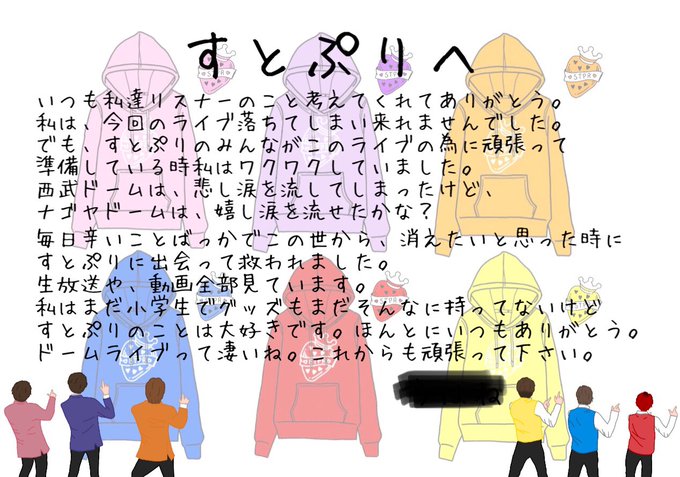 すとぷりへ
いつも私達リスナーのこと考えてくれてありがとう。
私は、今回のライブ落ちてしまい来れませんでした。
でも、すとぷりのみんながこのライブの為に頑張って
準備している時私はワクワクしていました。
西武ドームは、悲し涙を流してしまったけど、
ナゴヤドームは、嬉し涙を流せたかな？
毎日辛いことばっかでこの世から、消えたいと思った時に
すとぷりに出会って救われました。
生放送や、動画全部見ています。
私はまだ小学生でグッズもまだそんなに持ってないけど
すとぷりのことは大好きです。ほんとにいつもありがとう。
ドームライブって凄いね。これからも頑張って下さい。
STPR
STPR
STPR